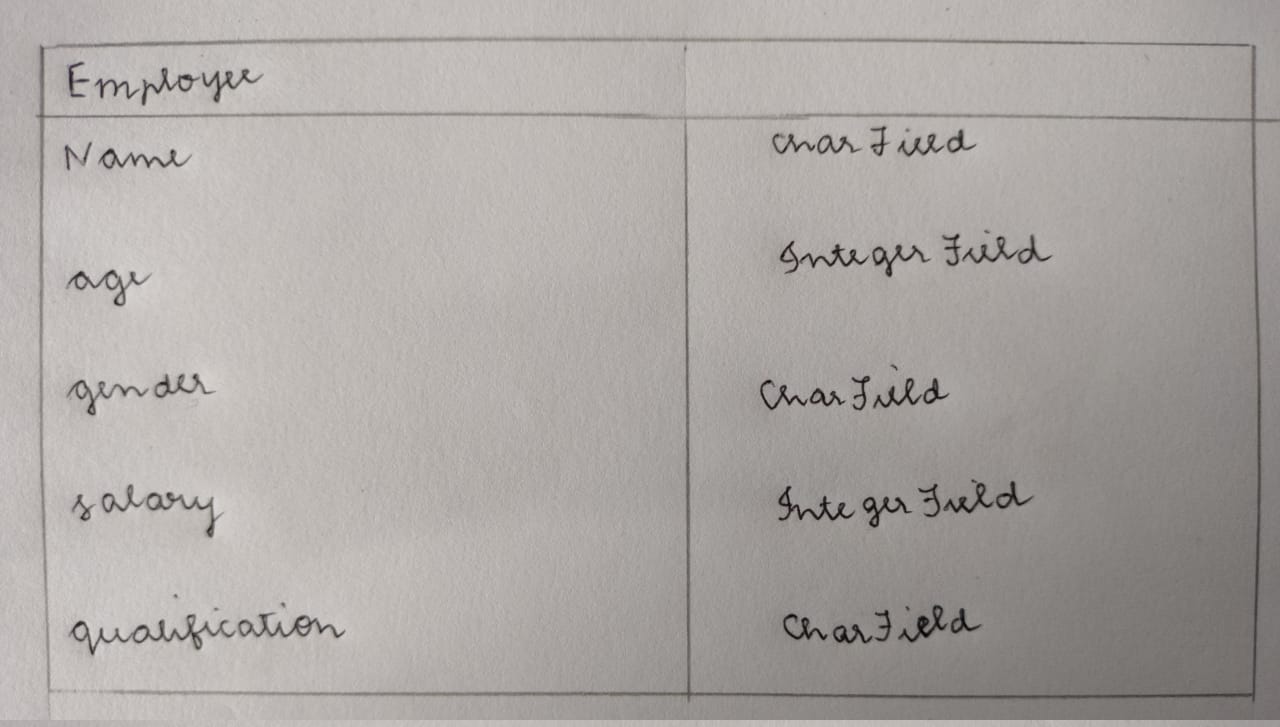 Employee
Name CharField
age Integer Field
gender CharField
salary Integer Field
qualification CharField